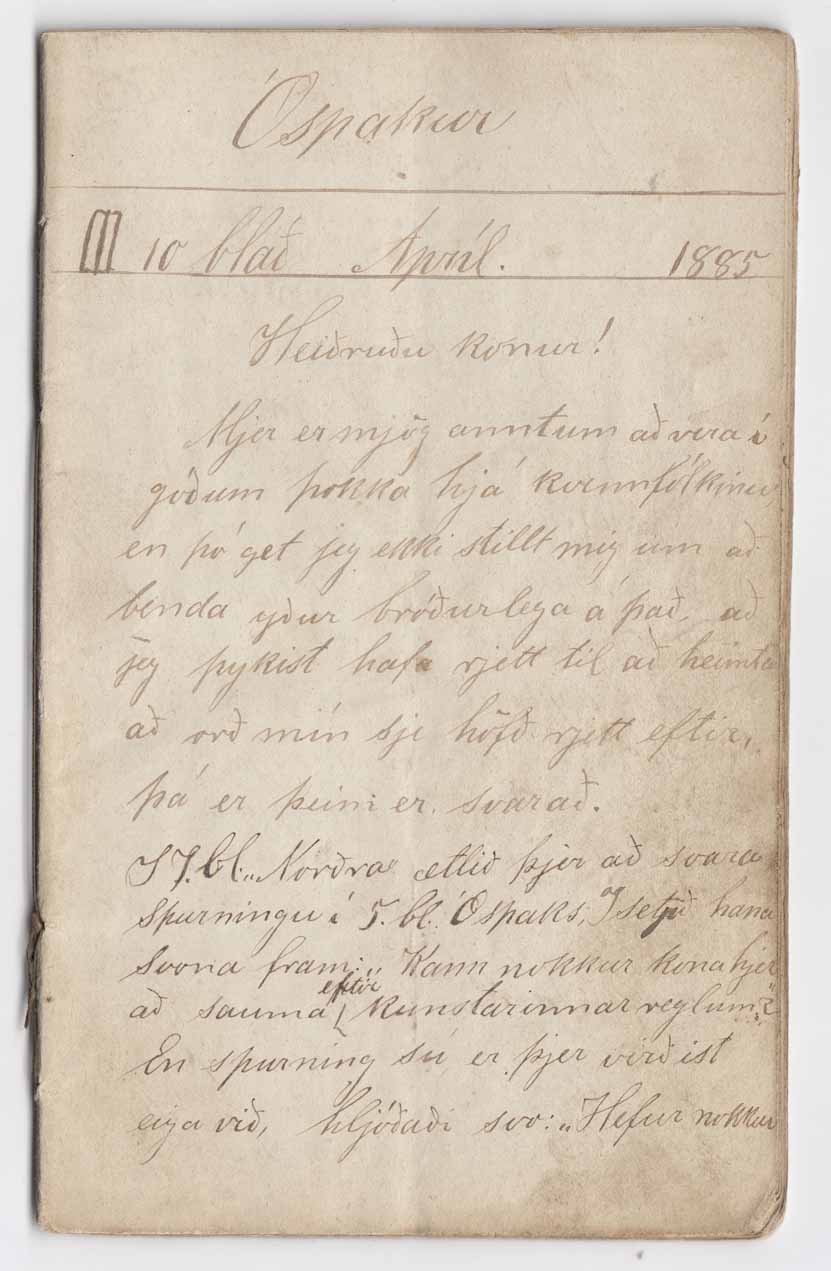 Óspakur
10 blað Apríl. 1885
Heiðruðu konur!
Mjer er mjög anntum að vera í
góðum þokka hjá kvennfólkinu,
en þó get jeg ekki stillt mig um að
benda yður bróðurlega á það, að
jeg þykist hafa rjett til að heimta
að orð mín sje höfð rjett eftir,
þá er þeim er svarað.
Í 7. bl. „Norðra“ ætlið þjer að svara
spurningu í 5. bl. Óspaks, og setjið hana
svona fram: „Kann nokkur kona hjer
að sauma eftir kunstarinnar reglum?“
En spurning sú er þjer virðist
eiga við, hljóðaði svo: „Hefur nokkur